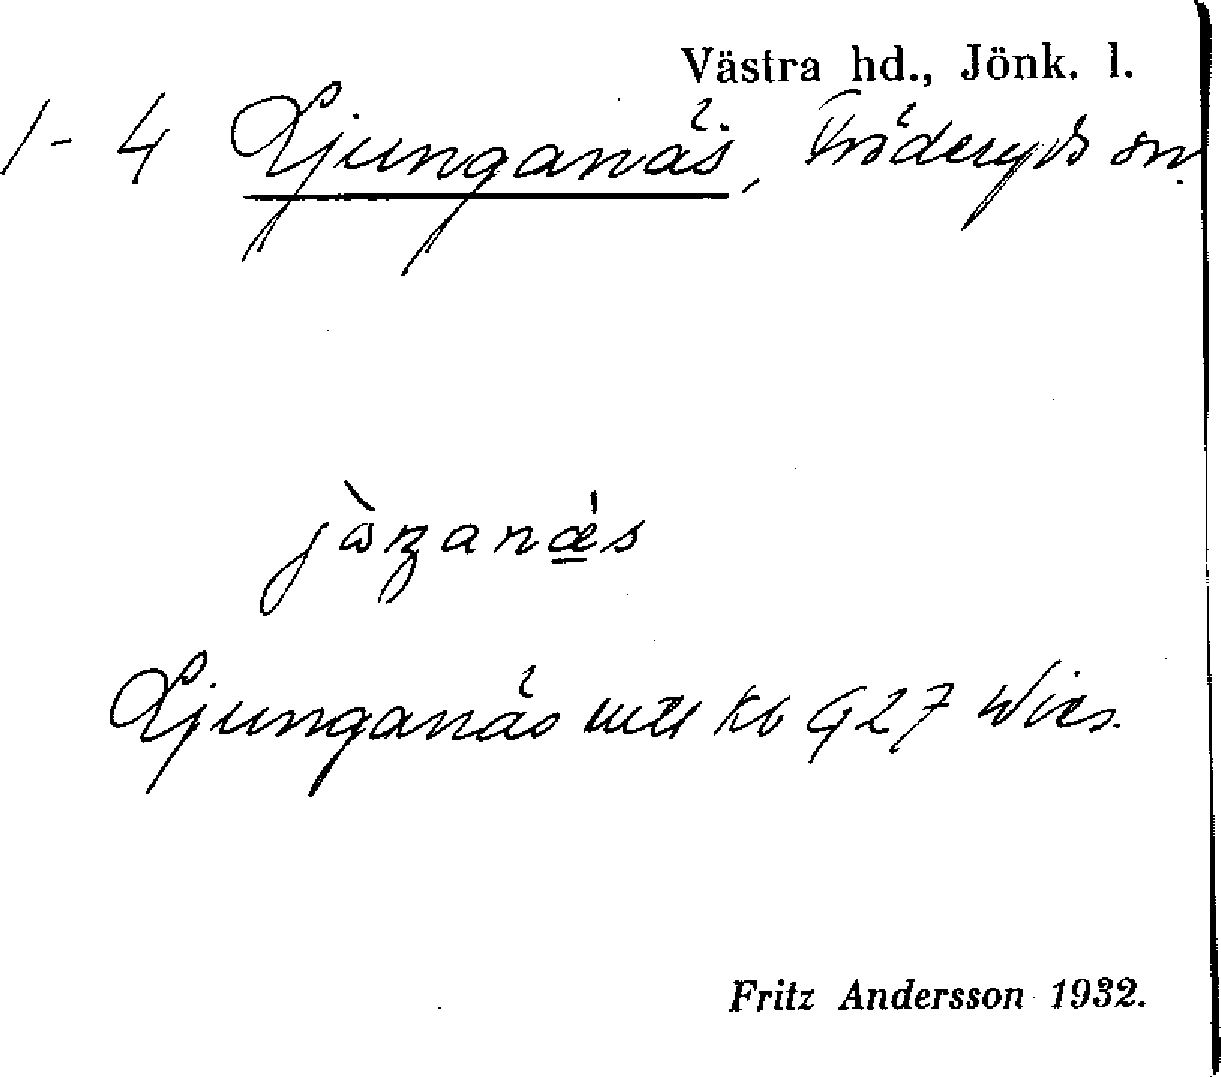 Västra hd., Jönk. l.
1-4 Ljunganäs, Fröderyds sn.
Ljunganäs mtl Kb G27 Wies.
Fritz Andersson 1932.